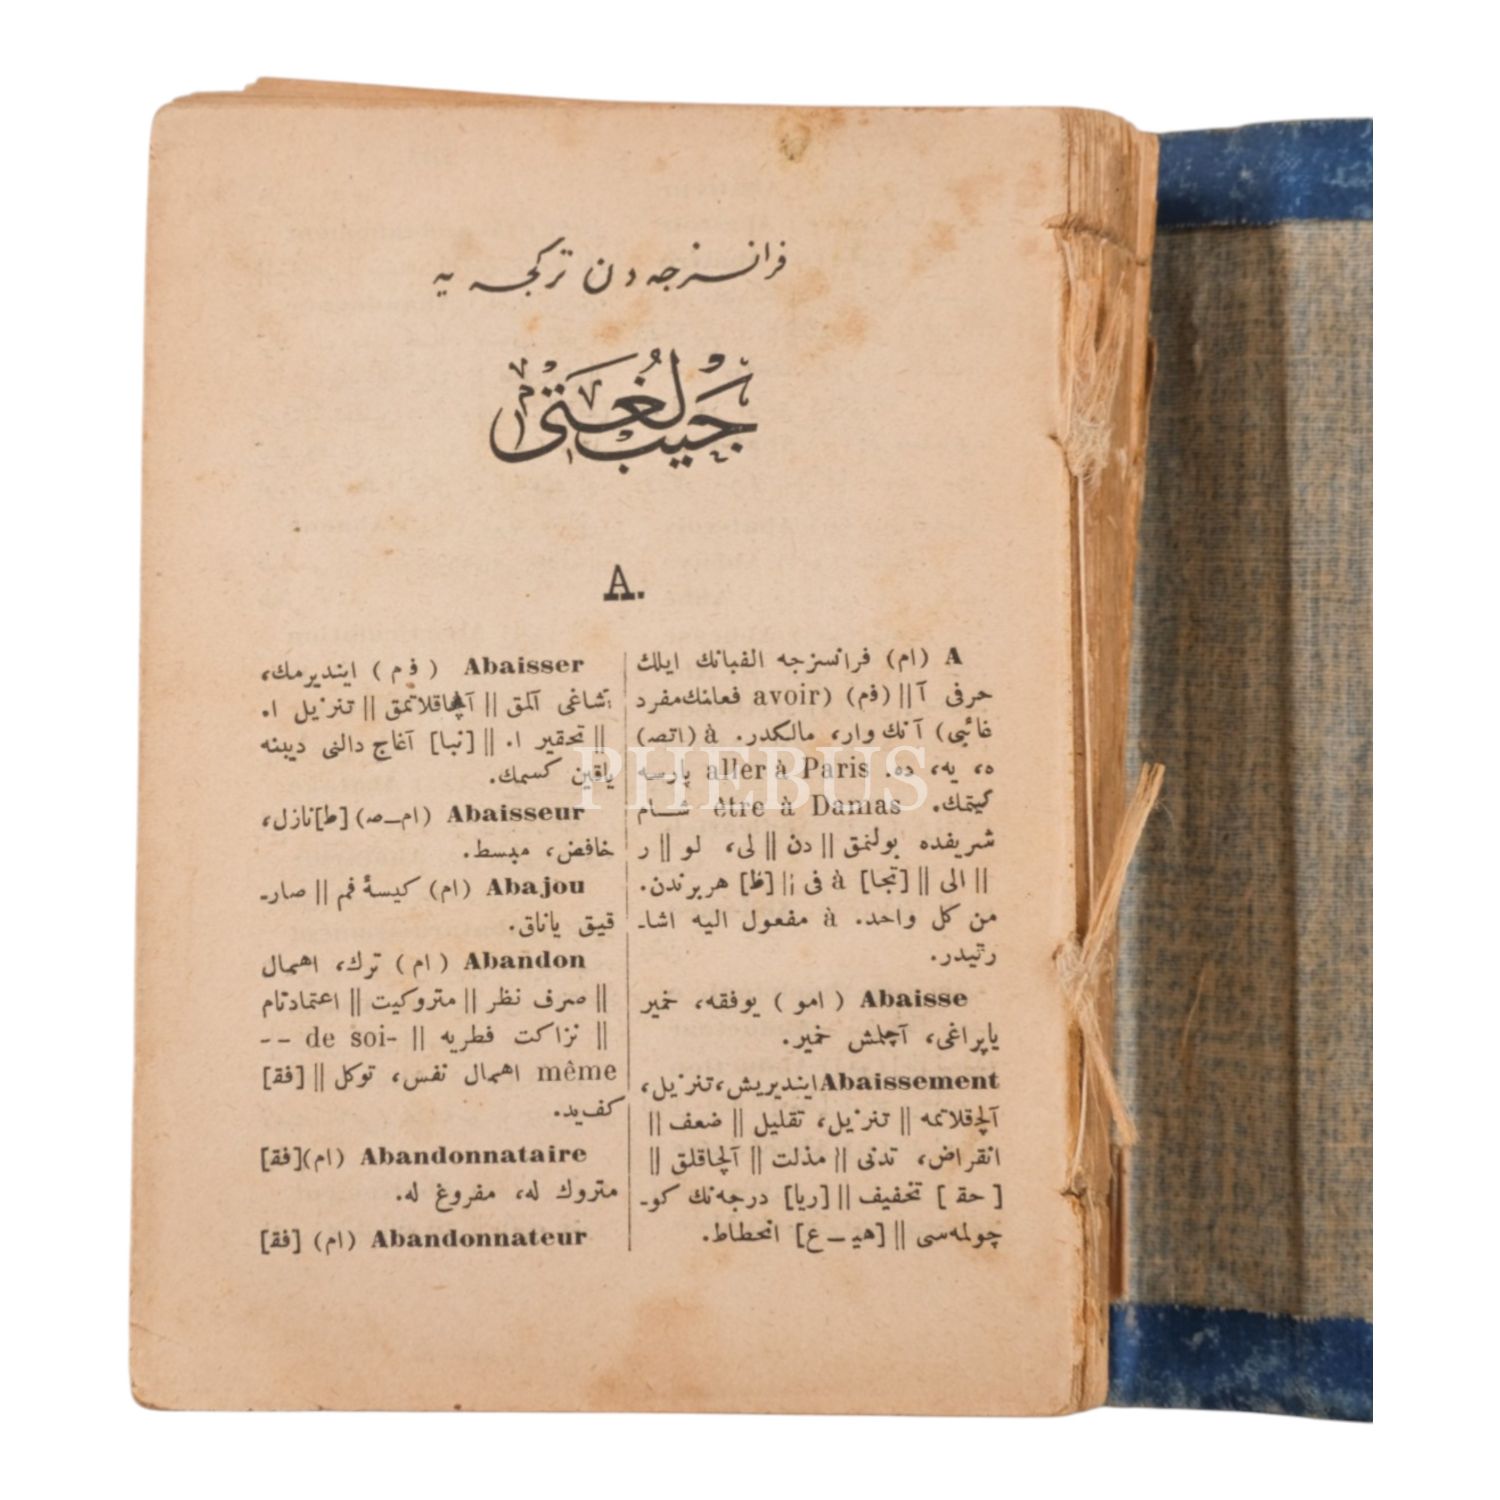 فرانسزجه‌دن تركجه‌یه
جیب لغتی
A.
A (ام) فرانسزجه الفبانك ایلك
حرفی آ || (فم) (avoir فعلنك مفرد
غائبی) آنك وار، مالكدر. à (اتصـ)
ه، یه، ده. aller à Paris پارسه
كیتمك. être à Damas شــام
شریفده بولنمق || دن || لی، لو || ر
|| الی || [تجا] à فی || [ظ] هربرندن.
من كل واحد. à مفعول الیه اشا-
رتیدر.
Abaisse (امو) یوفقه، خمیر
یاپراغی، آچلمش خمیر.
Abaissement ایندیریش، تنزیل،
آلچقلاتمه || تنزیل، تقلیل || ضعف ||
انقراض، تدنی || مذلت || آلچاقلق ||
[حقـ] تخفیف || [ریا] درجه‌نك كو-
چولمه‌سی || [هیـ - ع] انحطاط.
Abaisser (فم) ایندیرمك،
اشاغی آلمق || آلچاقلاتمق || تنزیل ا.
|| تحقیر ا. || [نبا] آغاج دالنی دیبینه
یاقین كسمك.
Abaisseur (ام-صـ) [ط] نازل،
خافض، مبسط.
Abajou (ام) كیسهٔ فم || صار-
قیق یاناق.
Abandon (ام) ترك، اهمال
|| صرف نظر || متروكیت || اعتمادتام
|| نزاكت فطریه || de soi- --
même اهمال نفس، توكل || [فقـ]
كف‌ید.
Abandonnataire (ام) [فقـ]
متروك له، مفروغ له.
Abandonnateur (ام) [فقـ]
PHEBUS